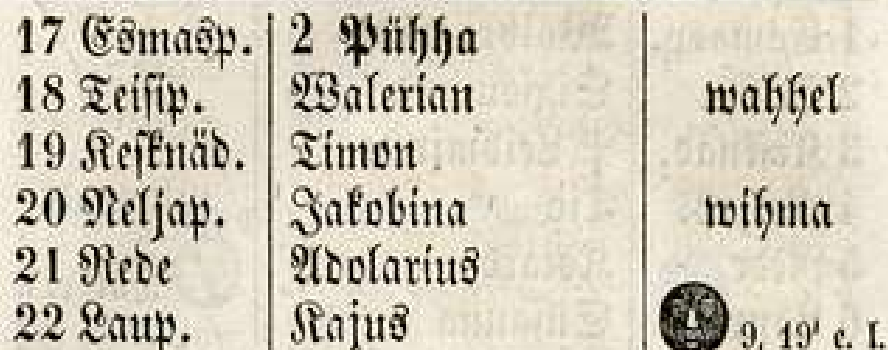 17 Esmasp. 2 Pühha
18 Teisip. Walerian wahhel
19 Kesknäd. Timon
20 Neljap. Jakobina wihma
21 Rede Adolarius
22 Laup. Kajus 9, 19' e. l.